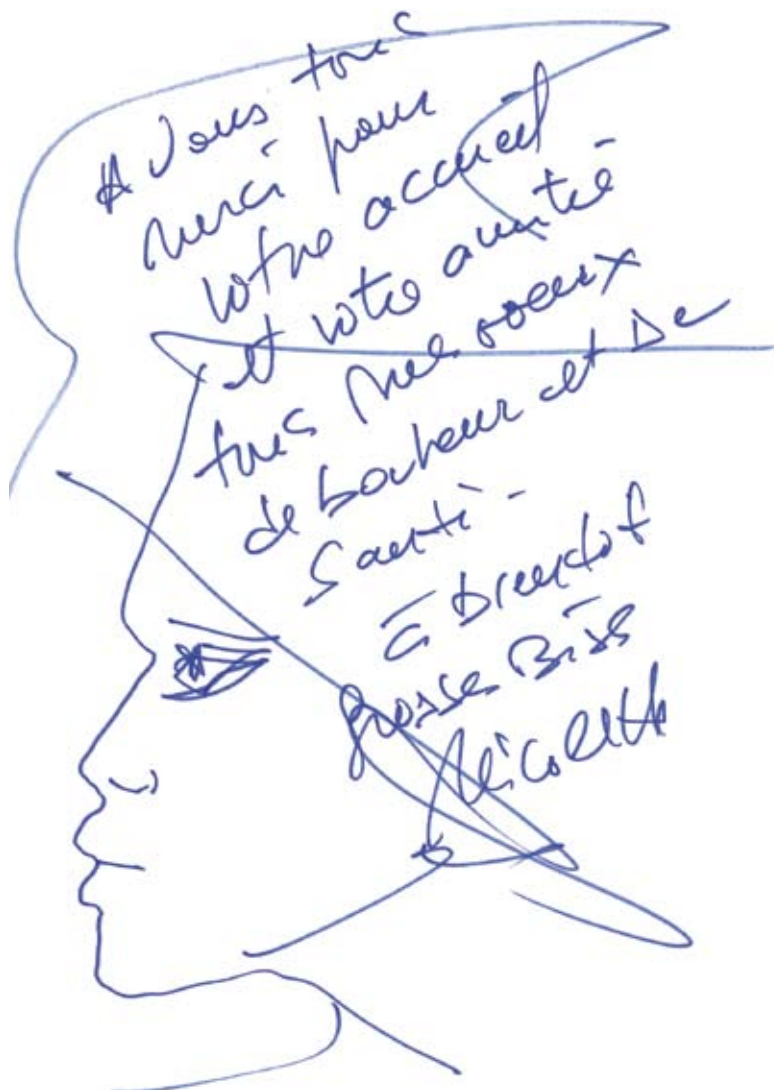 A vous tous
merci pour
votre accueil
et votre amitié
tous mes voeux
de bonheur et De
Santé -
à bientot
grosses Bises
Nicoletta